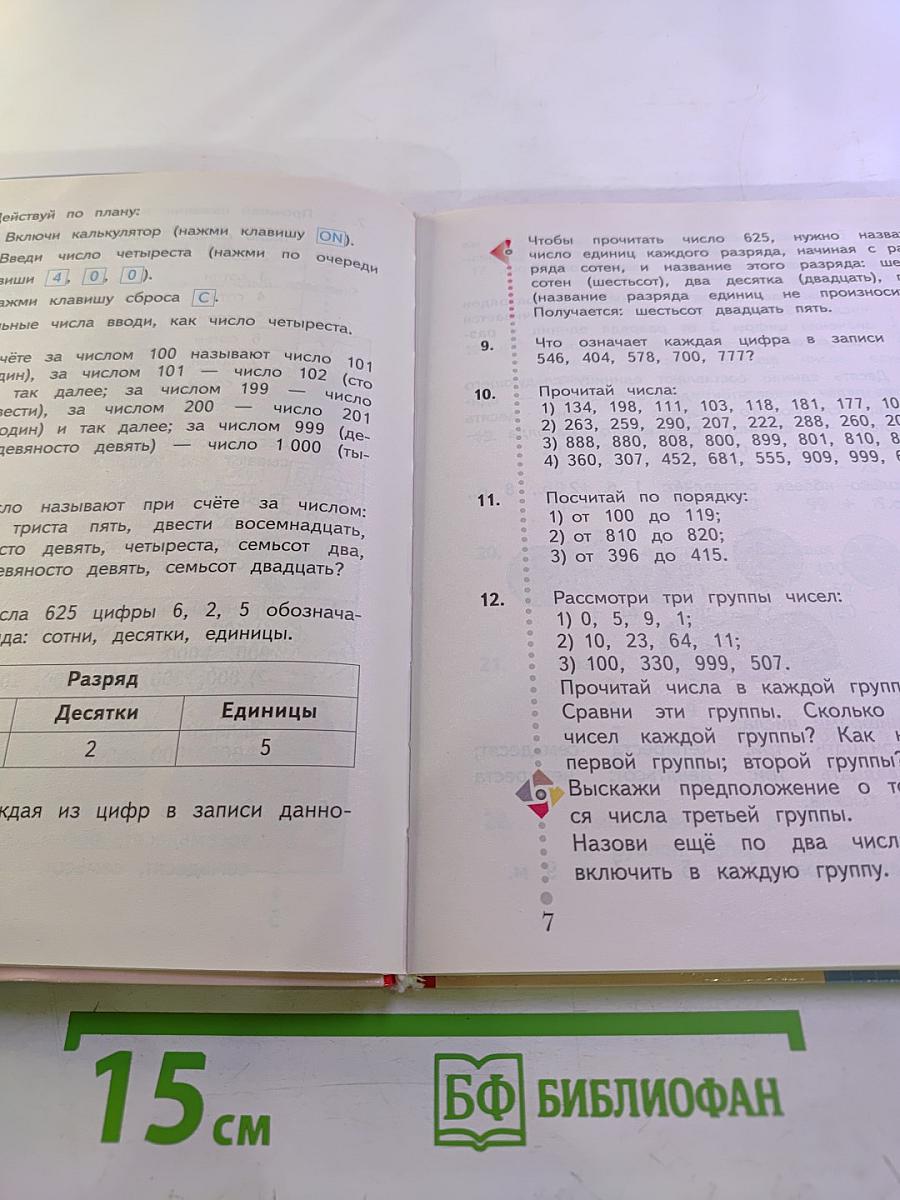 Действуй по плану:
Включи калькулятор (нажми клавишу ON).
Введи число четыреста (нажми по очереди
4, 0, 0).
клавишу сброса C.
числа вводи, как число четыреста.
счёте за числом 100 называют число 101
за числом 101 — число 102 (сто
так далее; за числом 199 — число
за числом 200 — число 201
и так далее; за числом 999 (де-
девяносто девять) — число 1 000 (ты-
называют при счёте за числом:
триста пять, двести восемнадцать,
девять, четыреста, семьсот два,
девяносто девять, семьсот двадцать?
625 цифры 6, 2, 5 обознача-
сотни, десятки, единицы.
Разряд
Десятки Единицы
2 5
из цифр в записи данно-
Чтобы прочитать число 625, нужно
число единиц каждого разряда, начиная с
ряда сотен, и название этого разряда:
сотен (шестьсот), два десятка (двадцать),
(название разряда единиц не
Получается: шестьсот двадцать пять.
9. Что означает каждая цифра в записи
546, 404, 578, 700, 777?
10. Прочитай числа:
1) 134, 198, 111, 103, 118, 181, 177,
2) 263, 259, 290, 207, 222, 288, 260,
3) 888, 880, 808, 800, 899, 801, 810,
4) 360, 307, 452, 681, 555, 909, 999,
11. Посчитай по порядку:
1) от 100 до 119;
2) от 810 до 820;
3) от 396 до 415.
12. Рассмотри три группы чисел:
1) 0, 5, 9, 1;
2) 10, 23, 64, 11;
3) 100, 330, 999, 507.
Прочитай числа в каждой
Сравни эти группы. Сколько
чисел каждой группы? Как
первой группы; второй группы?
Выскажи предположение о
ся числа третьей группы.
Назови ещё по два
включить в каждую группу.
7
15 см
БФ БИБЛИОФАН